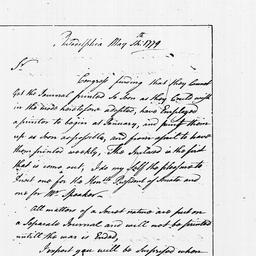 Philadelphia May 5th 1779
Sr.
Congress finding that they Cannot
Get the Journal printed so soon as they Could wish
in the mode heretofore adopted, have Employed
a printer to begin at January, and print them
up as soon as possible, and from april to have
them printed weekly, The Inclosed is the first
that is come out, I do my Self the pleasure to
Inclose one for the Honble President of Senate and
one for Mr. Speaker—
All matters of a Secret nature are put on
a Separate Journal and will not be printed
untill the war is Ended,
I expect you will be Surprised when